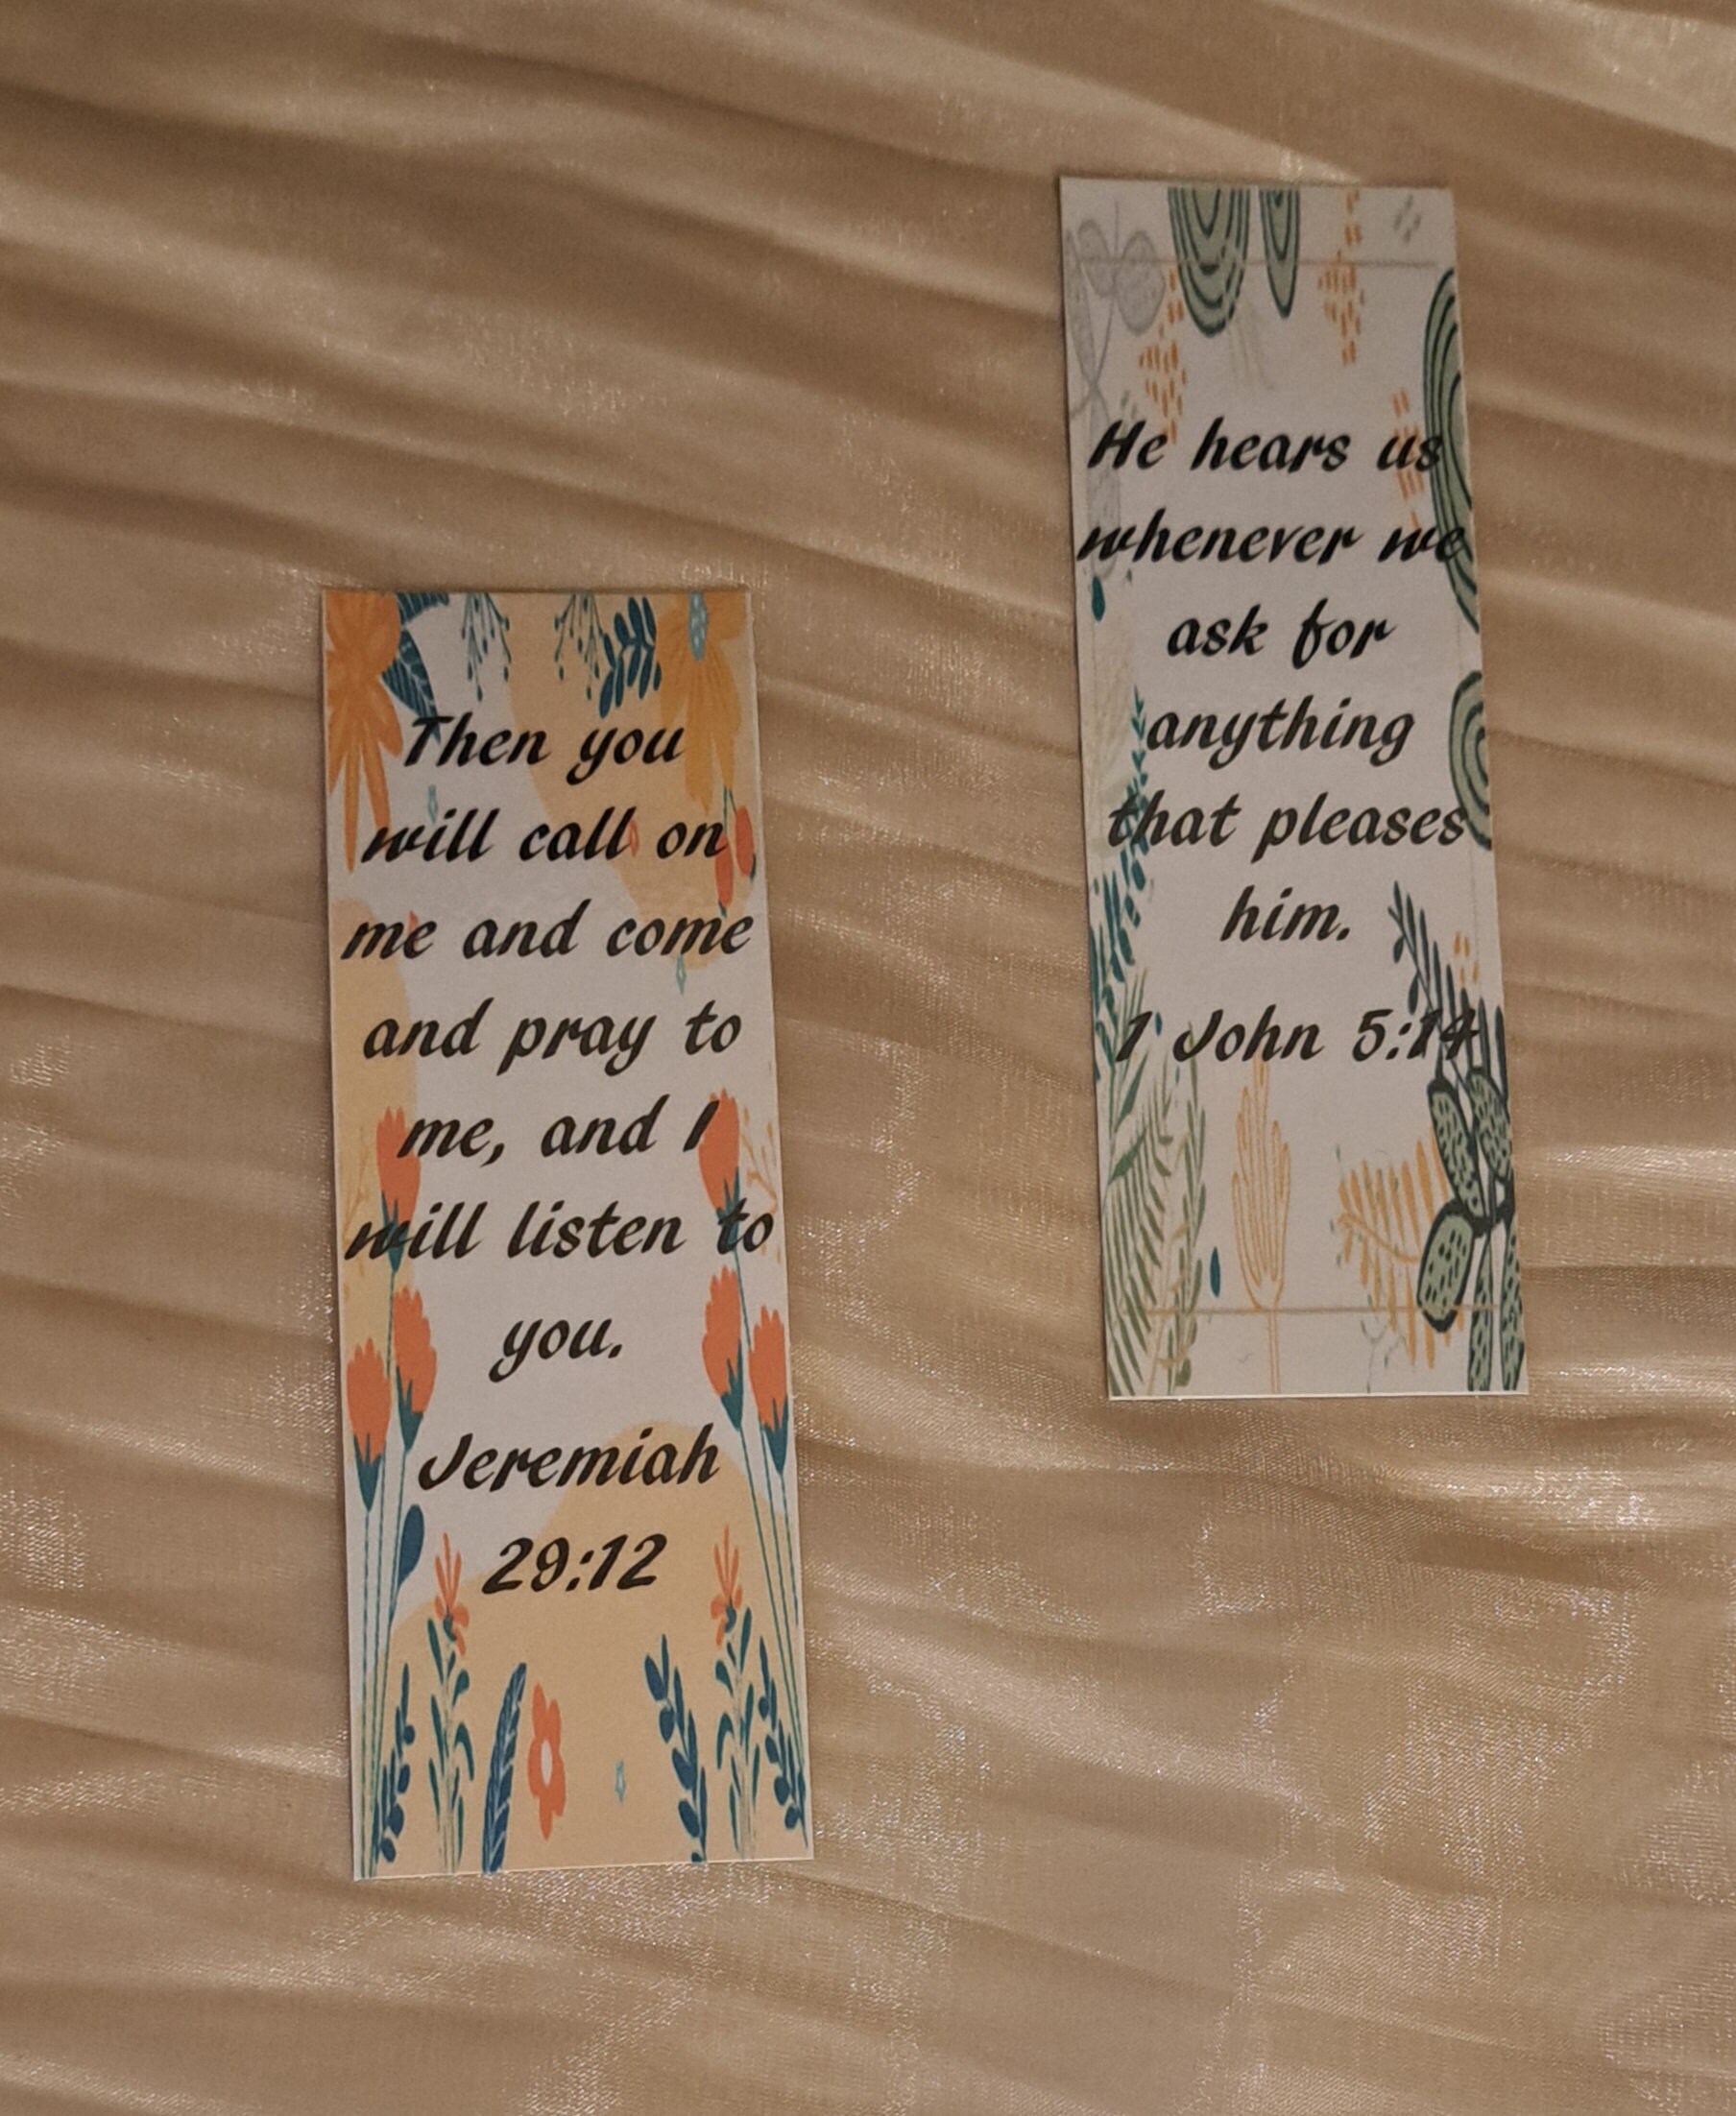 Then you
will call on
me and come
and pray to
me, and I
will listen to
you.
Jeremiah
29:12
He hears us
whenever we
ask for
anything
that pleases
him.
1 John 5:14